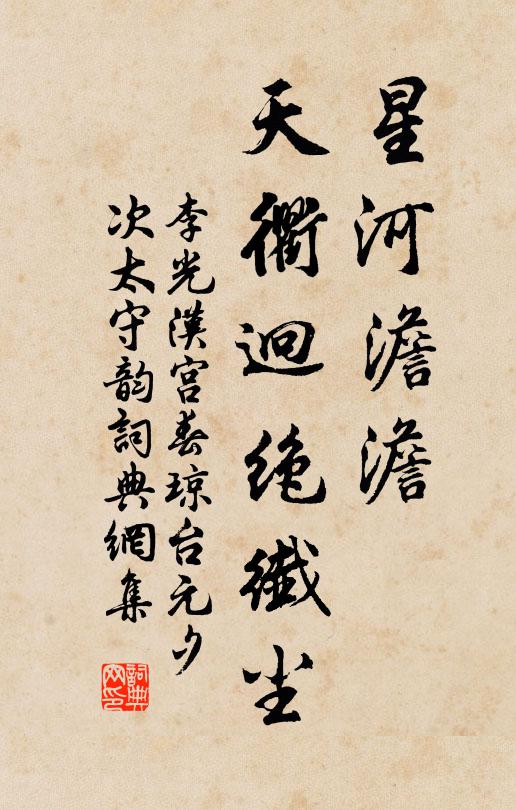 星河澹澹
天衢迥絶纖尘
李光漢宫春琼台元夕
次太守韵詞典網集
詞典网印